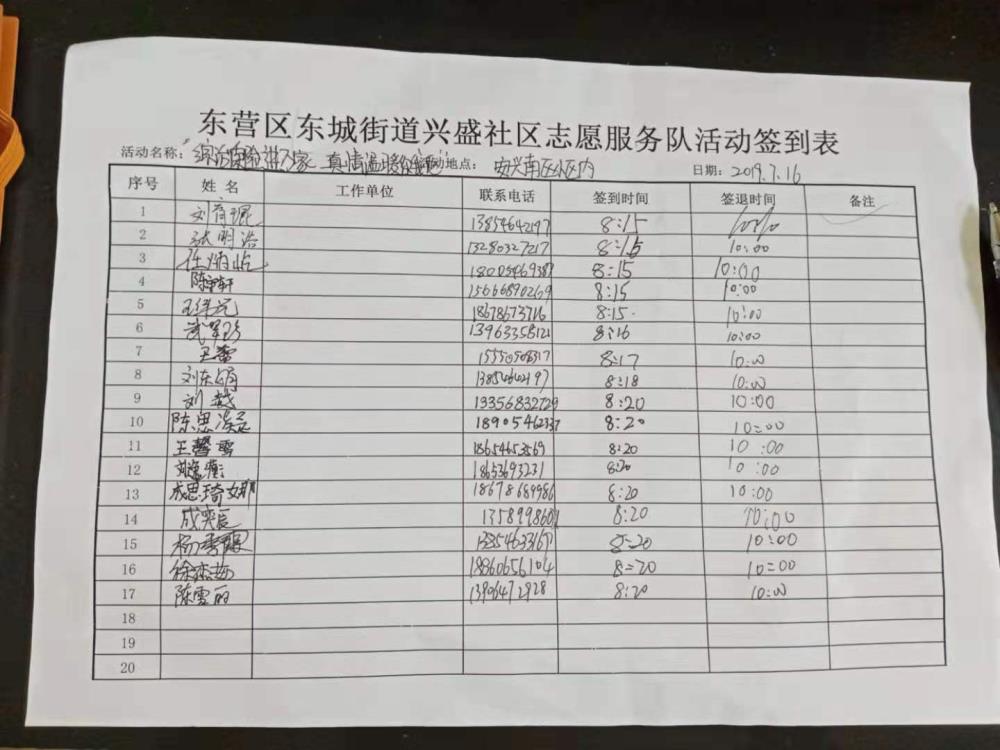 东营区东城街道兴盛社区志愿服务队活动签到表
活动名称： 进万家 真情温暖 动地点： 安兴南区小区内 日期：2019.7.16
序号 姓名 工作单位 联系电话 签到时间 签退时间 备注
1 刘育琨 13854642197 8:15
2 张明浩 13280327217 8:15 10:00
3 8:15 10:00
4 陈宇轩 15666890269 8:15 10:00
5 18678673716 8:15. 10:00
6 13963358121 8:16 10:00
7 王蕾 8:17 10:00
8 刘东娟 13854642197 8:18 10:00
9 刘越 13356832729 8:20 10:00
10 陈思凝 18905462337 8:20 10:00
11 王馨雪 18654653569 8:20 10:00
12 18653693231 8:20 10:00
13 成思琦 18678689986 8:20 10:00
14 成奕辰 8:20 10:00
15 杨秀 13854633167 8:20 10:00
16 徐杰茹 18860656104 8:20 10:00
17 陈雪丽 13906472928 8:20 10:00
18
19
20